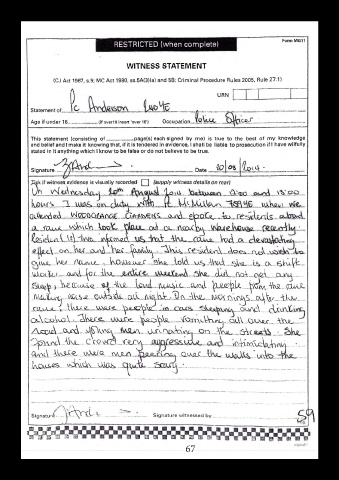 Form MG11
RESTRICTED (when complete)
WITNESS STATEMENT
(CJ Act 1967, s.9; MC Act 1980, ss.5A(3)(a) and 5B; Criminal Procedure Rules 2005, Rule 27.1)
URN
Statement of Pc Anderson
Age if under 18 (if over 18 insert 'over 18') Occupation Police Officer
This statement (consisting of page(s) each signed by me) is true to the best of my knowledge
and belief and I make it knowing that, if it is tendered in evidence, I shall be liable to prosecution if I have wilfully
stated in it anything which I know to be false or do not believe to be true.
Signature Date 20/08/2014
Tick if witness evidence is visually recorded (supply witness details on rear)
On Wednesday 20th August 2014 between and 15:00
hours I was on duty with Pc McMillan when we
attended WOODGRANGE GARDENS and spoke to residents about
a rave which took place at a nearby warehouse recently.
Resident informed us that the rave had a devastating
effect on her and her family. This resident does not wish to
give her name, however she told us that she is a shift
worker and for the entire weekend she did not get any
sleep because of the loud music and people from the rave
making noise outside all night. In the mornings after the
rave, there were people in cars sleeping and drinking
alcohol. There were people vomiting all over the
road and men urinating on the streets. She
found the crowd very aggressive and intimidating.
and there were men peering over the walls into the
houses which was quite scary.
Signature Signature witnessed by
59
67